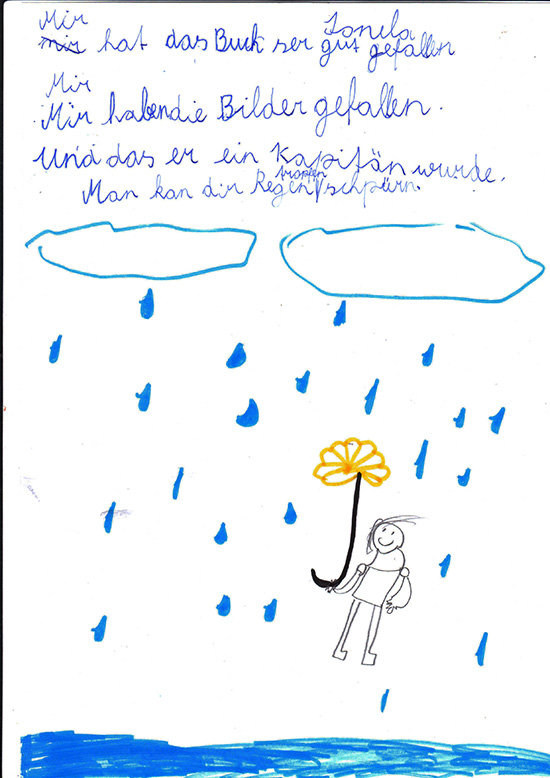 Mir Jonela
mir hat das Buch ser gut gefallen
Mir
Mir haben die Bilder gefallen.
Und das er ein Kapitän wurde.
tropfen
Man kan dir Regen schpürn.